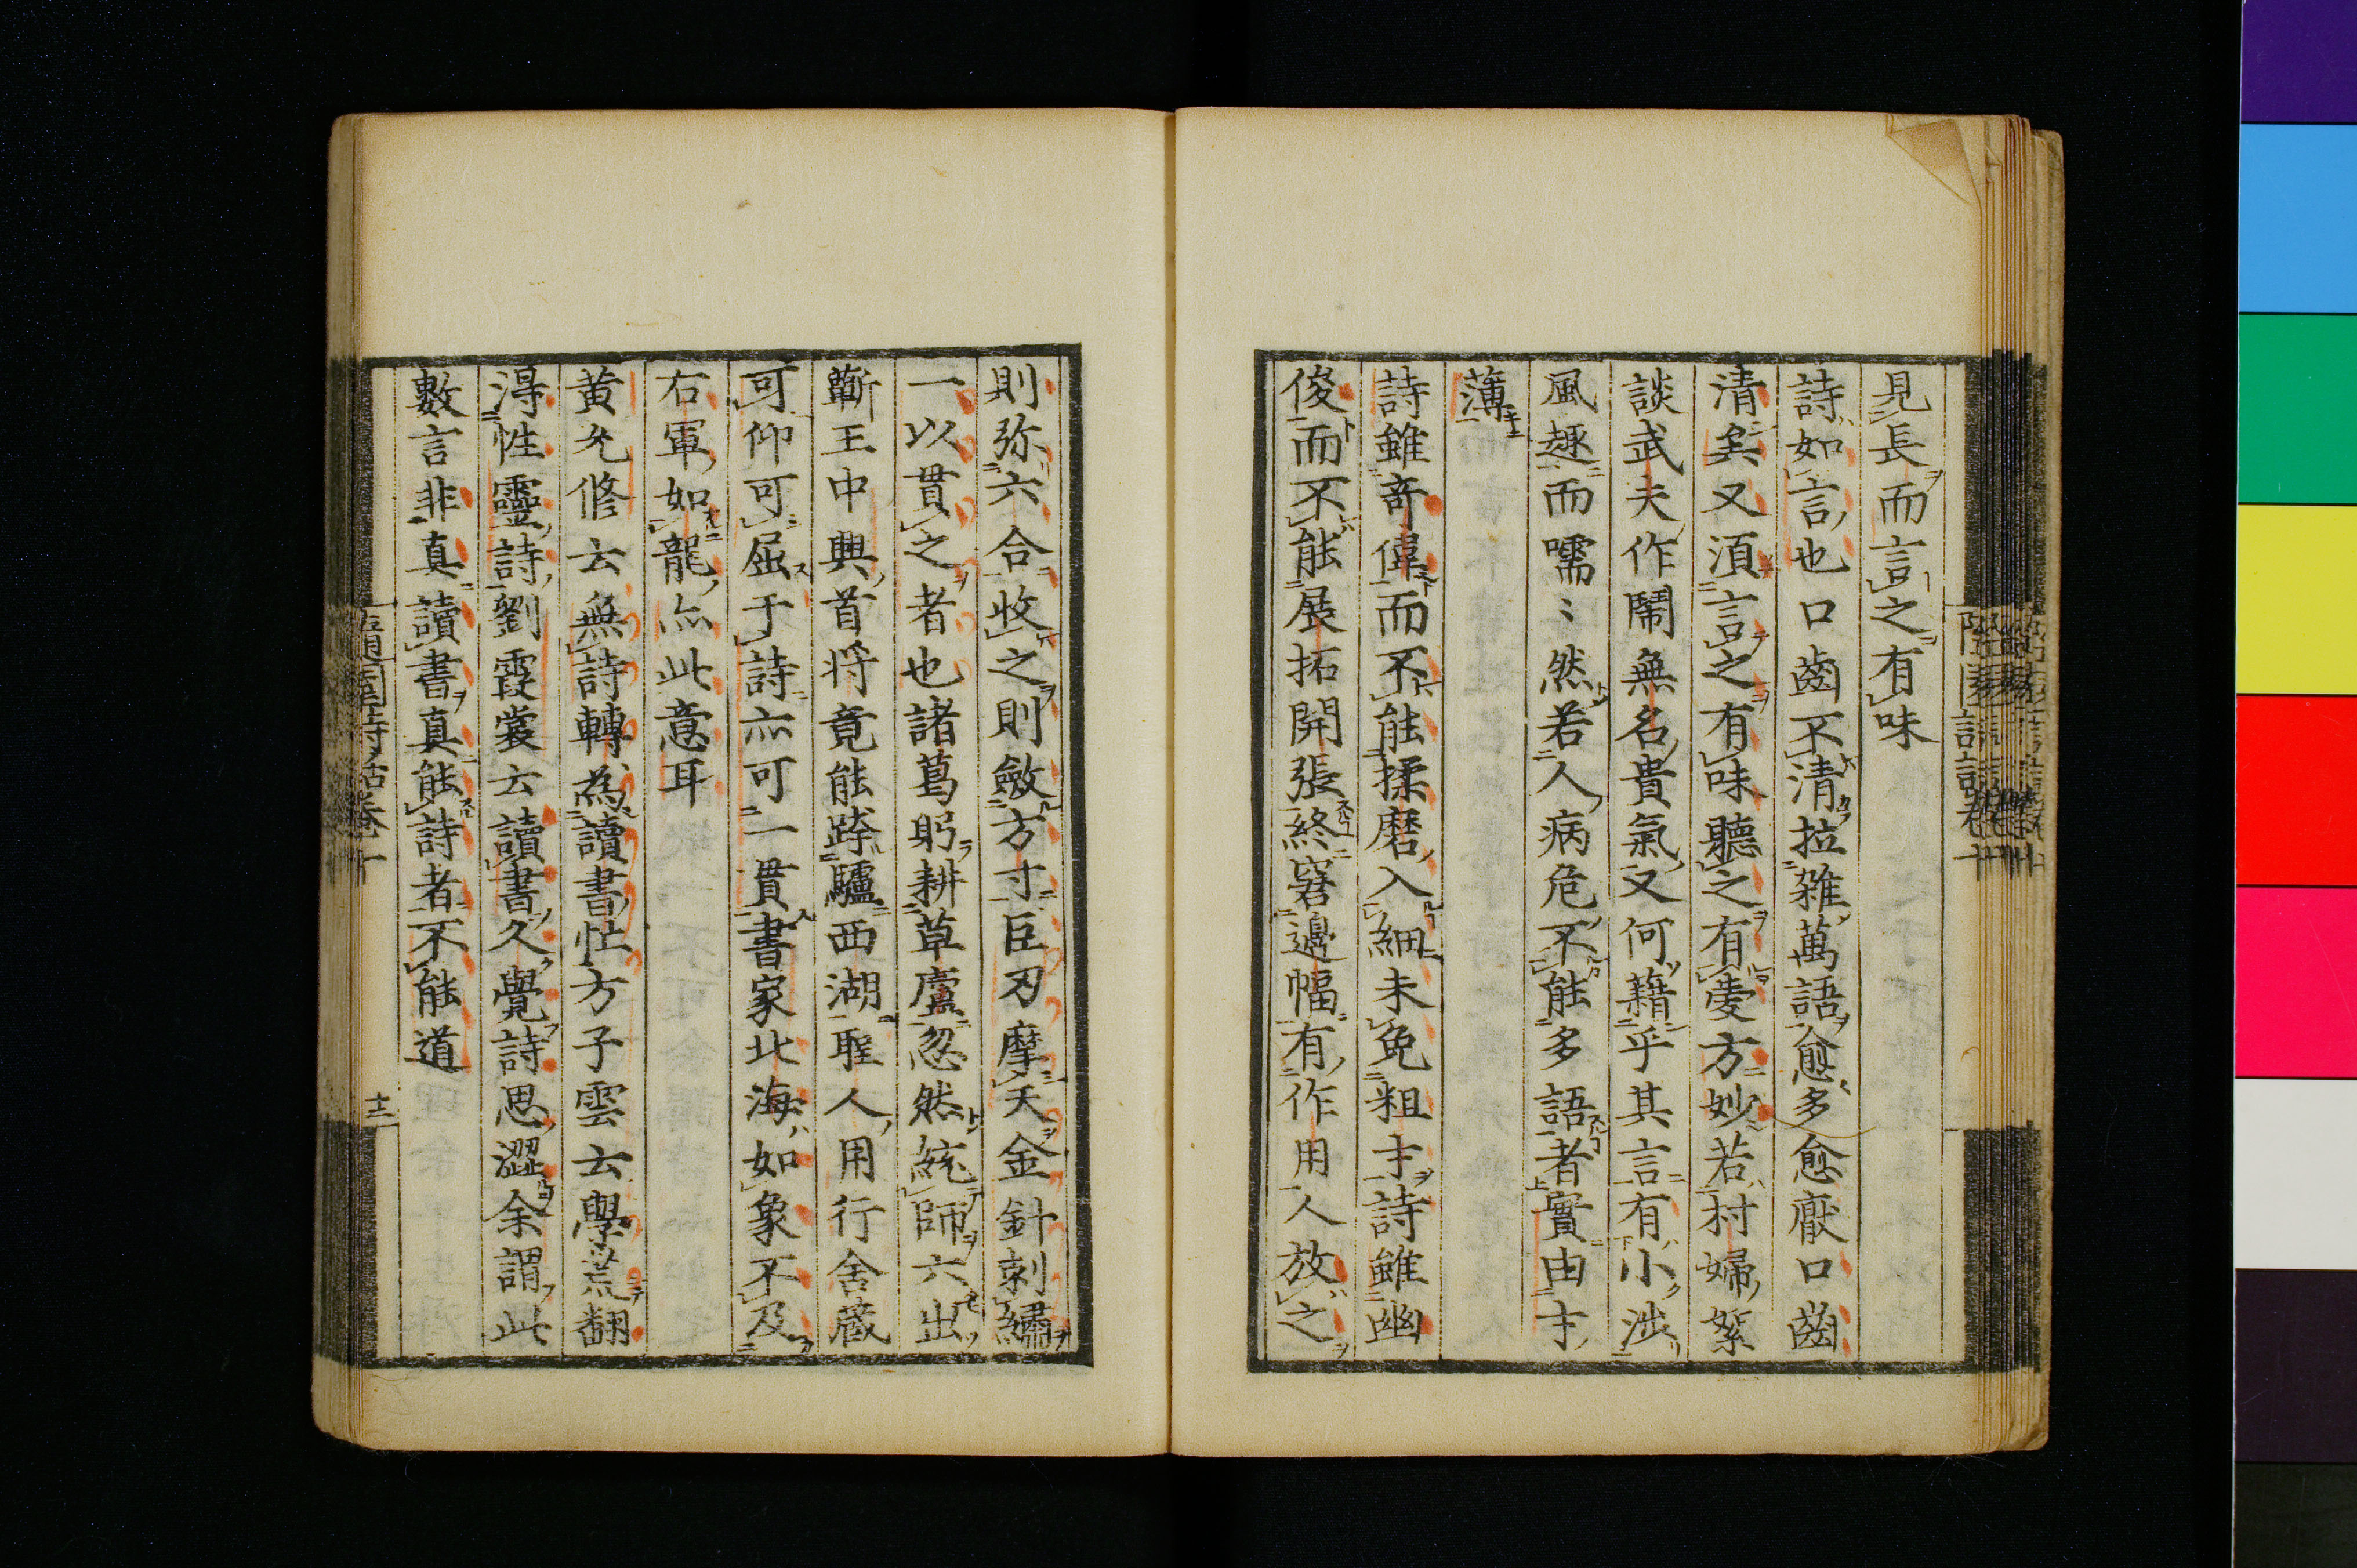 見長而言之有味
詩如言也口齒不清拉雜萬語愈多愈厭口齒
清矣又須言之有味聽之有愛方妙若村婦絮
談武夫作鬧無名貴氣又何藉乎其言有小涉
風趣而嚅〻然若人病危不能多語者實由才
薄
詩雖奇偉而不能揉磨入細未免粗才詩雖幽
俊而不能展拓開張終窘邊幅有作用人放之
則弥六合收之則斂方寸巨刃摩天金針刺繡
一以貫之者也諸葛躬耕草廬忽然統師六出
蘄王中興首将竟能跨驢西湖聖人用行舍蔵
可仰可屈于詩亦可一貫書家北海如象不及
右軍如龍亦此意耳
黄允修云無詩轉為讀書忙方子雲云學荒翻
得性靈詩劉霞裳云讀書久覺詩思澀余謂此
數言非真讀書真能詩者不能道
随園詩話巻十
十二